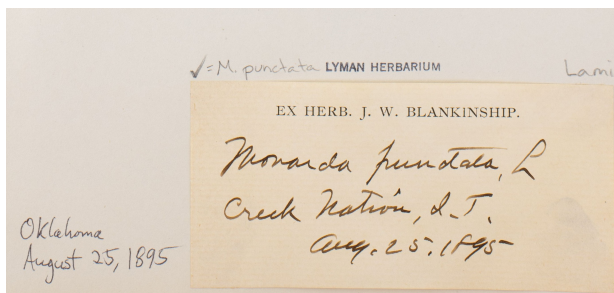 ✓= M. punctata LYMAN HERBARIUM Lami
EX HERB. J. W. BLANKINSHIP.
Monarda punctata, L
Creek Nation, I. T.
Aug. 25. 1895
Oklahoma
August 25, 1895